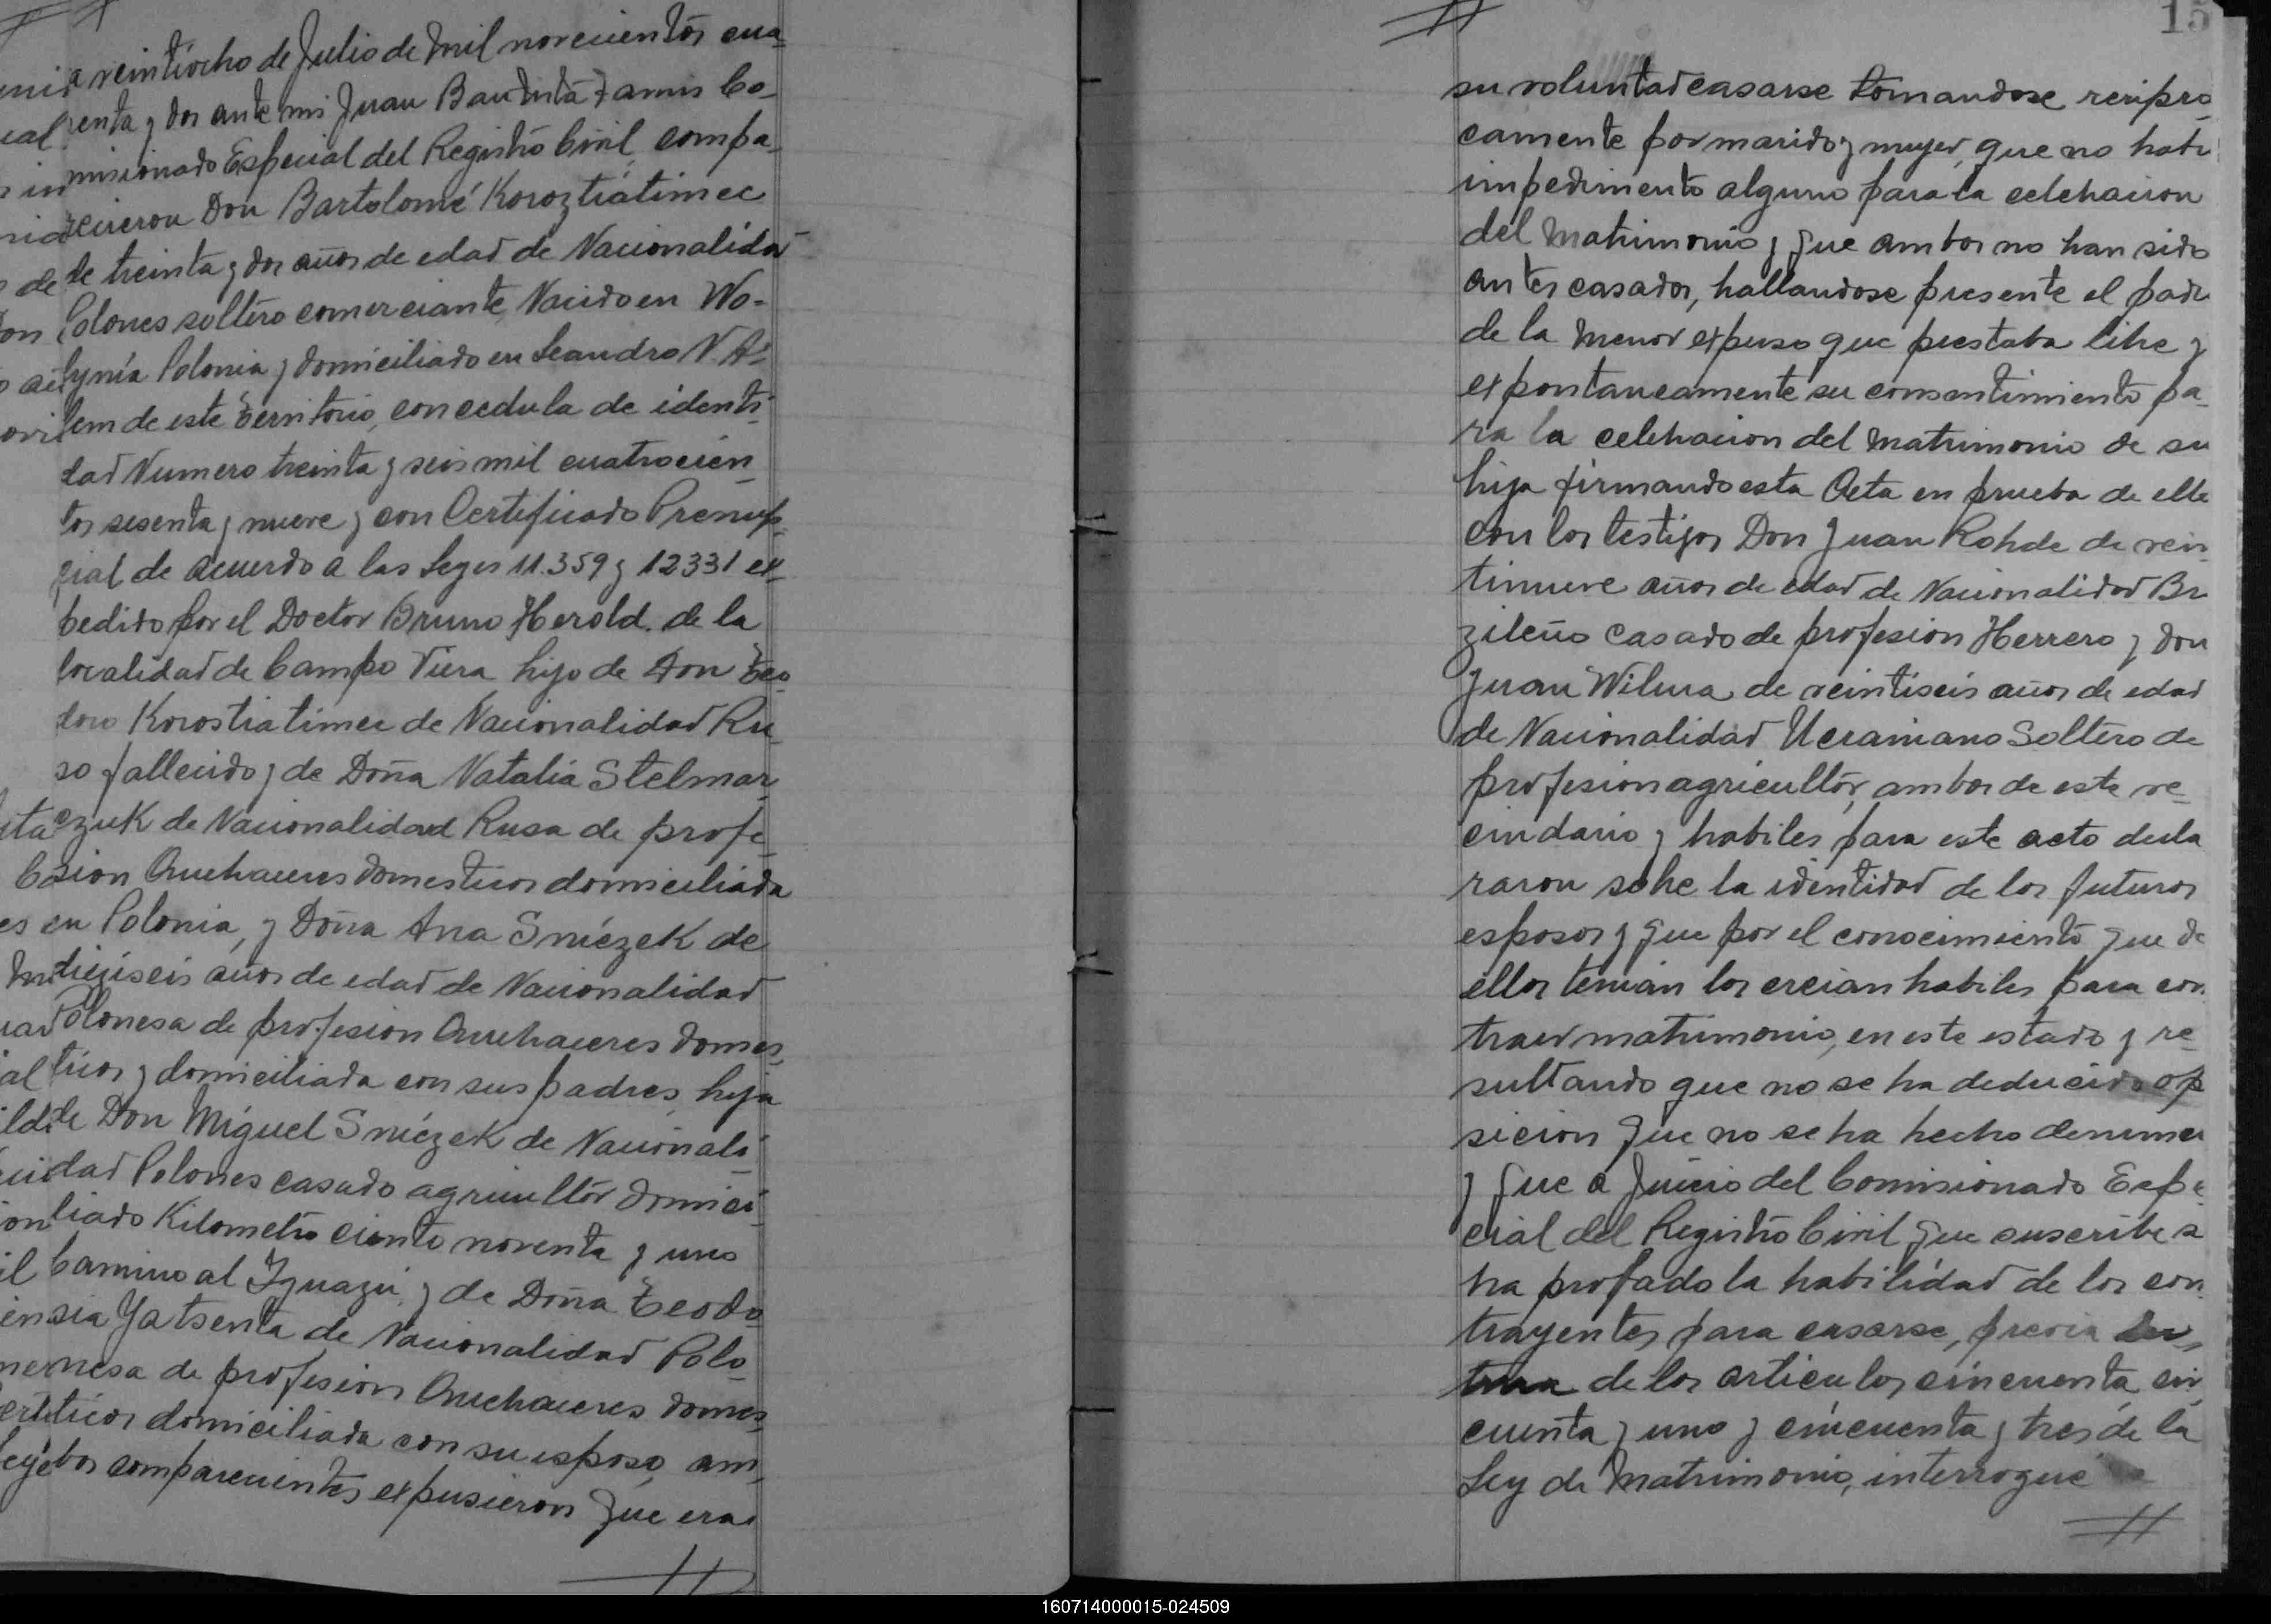 a veintiocho de Julio de Mil novecientos cua-
renta y dos ante mi Juan Bautista Ramis Co-
misionado Especial del Registro Civil, compa-
recieron Don Bartolomé Koroztiatimec
de treinta y dos años de edad de Nacionalidad
Polones soltero comerciante, Nacido en Wo-
lynía Polonia y domiciliado en Leandro N. A-
lem de este Territorio, con cedula de identi-
dad Numero treinta y seis mil cuatrocien-
tos sesenta y nueve y con Certificado Prenup-
cial de acuerdo a las Leyes 11.359 y 12331 ex-
pedido por el Doctor Bruno Herold. de la
localidad de Campo Viera hijo de Don Teo-
doro Korostiatimec de Nacionalidad Ru-
so fallecido y de Doña Natalia Stelmar-
czuk de Nacionalidad Rusa de profe-
sion Quehaceres domesticos domiciliada
en Polonia, y Doña Ana Sniézek de
dieciseis años de edad de Nacionalidad
Polonesa de profesion Quehaceres domes-
ticos y domiciliada con sus padres, hija
de Don Miguel Sniézek de Nacionali-
dad Polones casado agricultor domici-
liado Kilometro ciento noventa y uno
Camino al Iguazú, y de Doña Teodo-
sia Yatsenta de Nacionalidad Polo-
nesa de profesion Quehaceres domes-
ticos domiciliada con su esposo, am-
bos comparecientes expusieron que era
15
su voluntad casarse tomandose recipro-
camente por marido y mujer, que no habi
impedimento alguno para la celebracion
del Matrimonio y que ambos no han sido
antes casados, hallandose presente el padr
de la Menor expuso que prestaba libre y
expontaneamente su consentimiento pa-
ra la celebracion del Matrimonio de su
hija firmando esta Acta en prueba de ello
con los testigos Don Juan Rohde de vein
tinueve años de edad de Nacionalidad Br
zileño casado de profesion Herrero y Don
Juan Wilma de veintiseis años de edad
de Nacionalidad Ucraniano Soltero de
profesion agricultor, ambos de este ve-
cindario y habiles para este acto decla
raron sobre la identidad de los futuros
esposos y que por el conocimiento que de
ellos tenian los creian habiles para con
traer matrimonio, en este estado y re-
sultando que no se ha deducido op
sicion que no se ha hecho denuncia
y que a Juicio del Comisionado Espe
cial del Registro Civil que suscribe s
ha probado la habilidad de los con
trayentes para casarse, previa lec-
tura de los articulos cincuenta, cin
cuenta y uno y cincuenta y tres de la
Ley de Matrimonio, interrogue
160714000015-024509